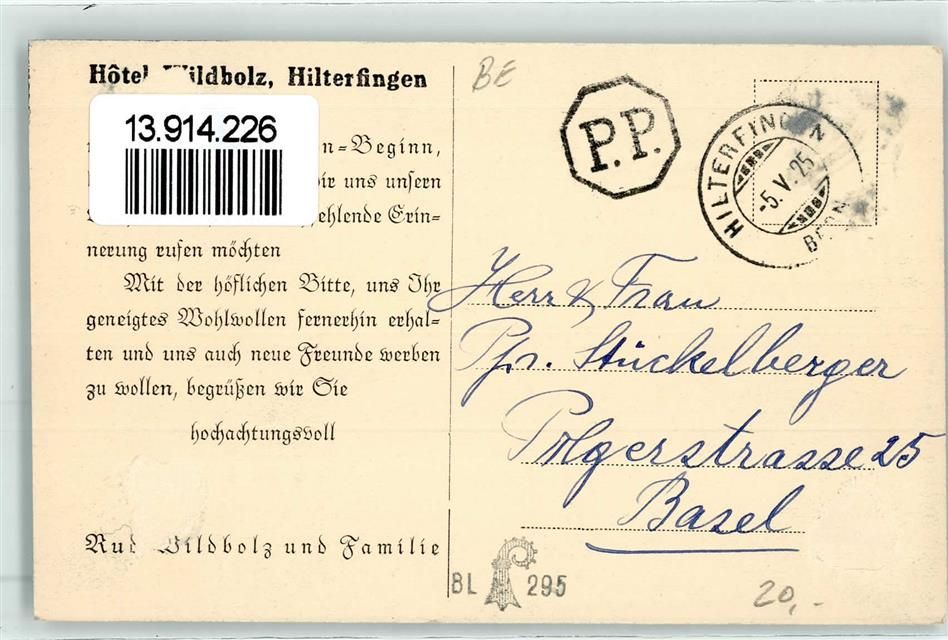 Hôtel Wildbolz, Hilterfingen
13.914.226
n=Beginn,
wir uns unsern
ehlende Erin=
nerung rufen möchten
Mit der höflichen Bitte, uns Ihr
geneigtes Wohlwollen fernerhin erhal=
ten und uns auch neue Freunde werben
zu wollen, begrüßen wir Sie
hochachtungsvoll
Rud. Wildbolz und Familie
BE
P.P.
HILTERFINGEN
-5.V.25
BERN
Herr & Frau
Pfr. Stückelberger
Polgerstrasse 25
Basel
BL 295
20,-